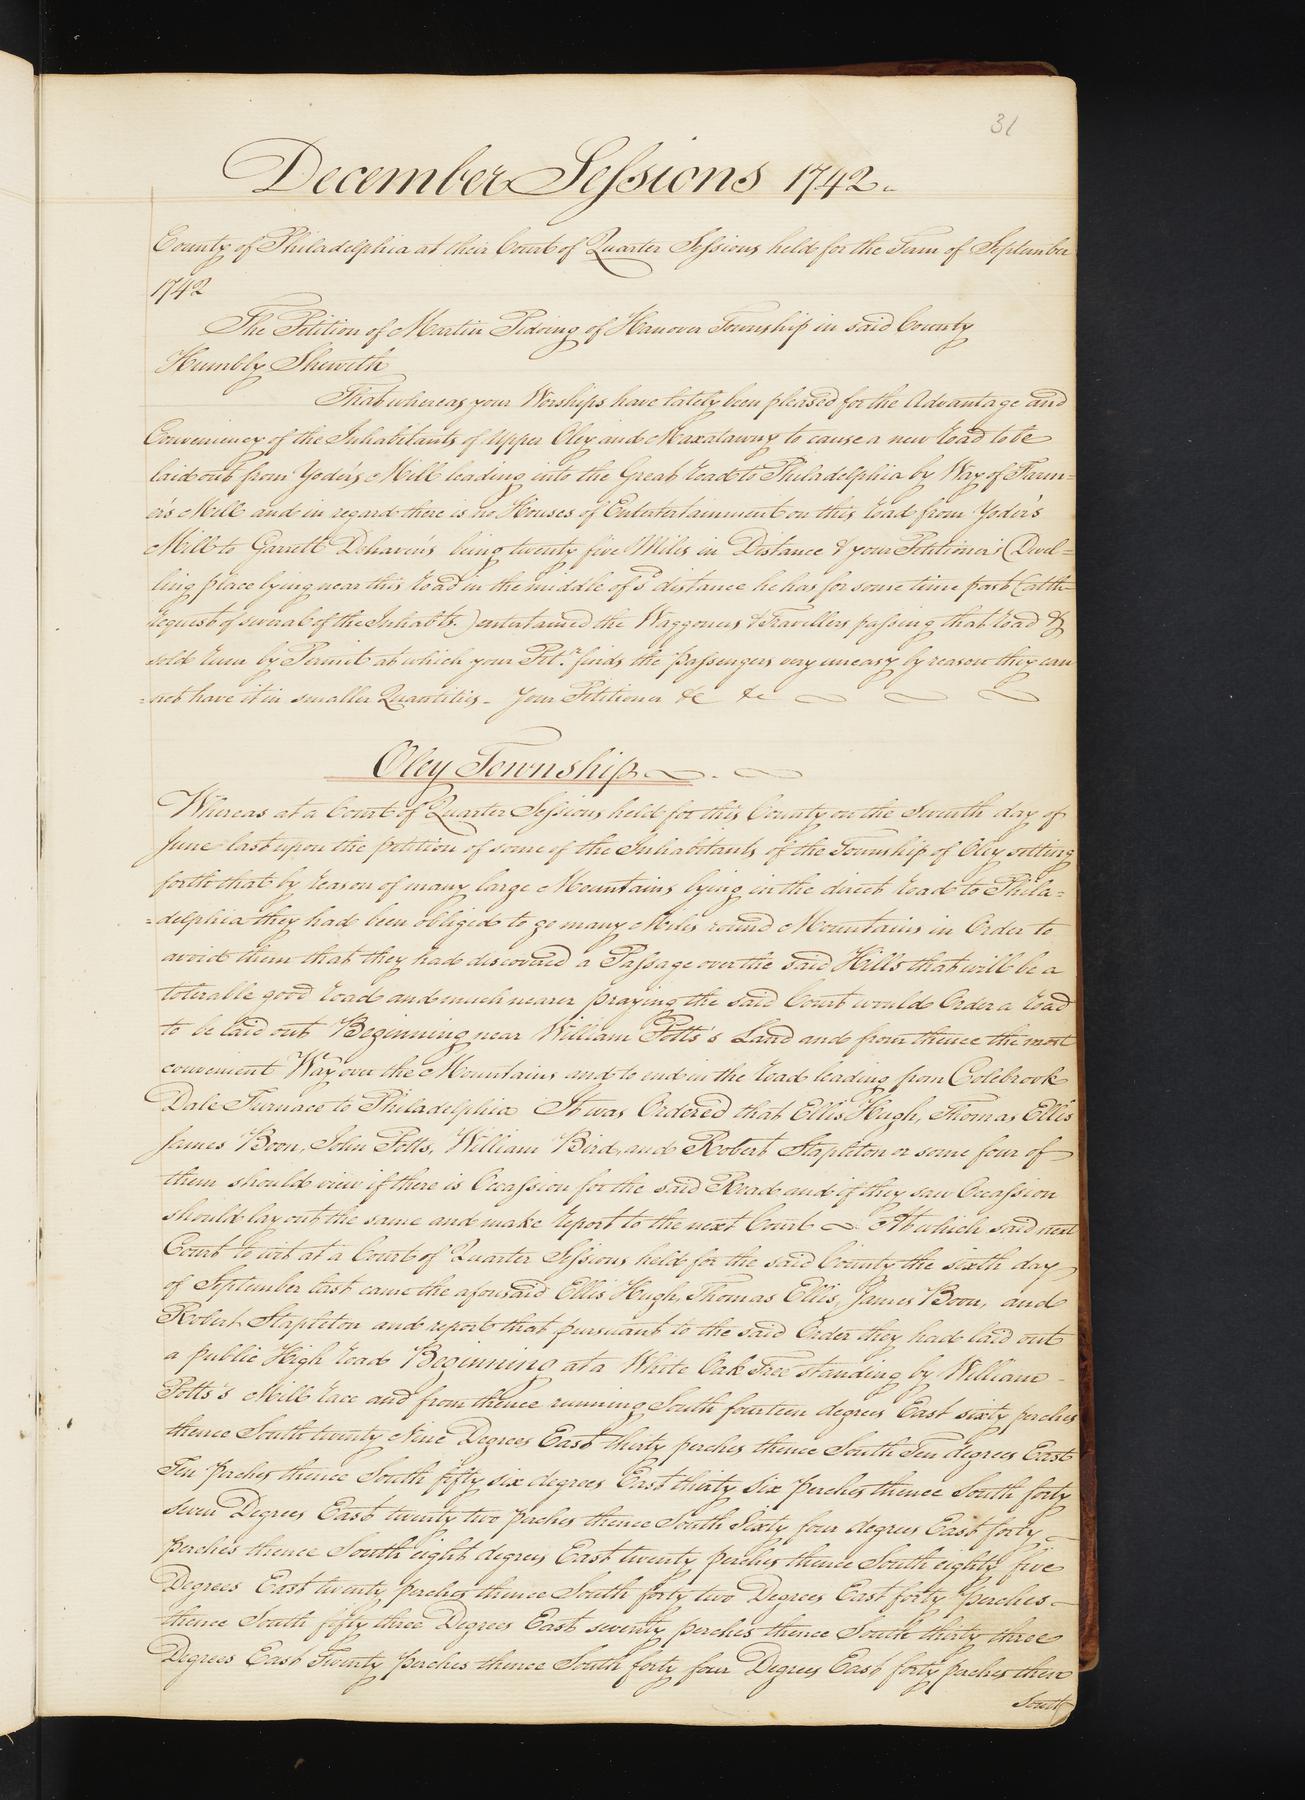 31
December Sessions 1742.
County of Philadelphia at their Court of Quarter Sessions held for the Term of September
1742
The Petition of Martin Pidving of Hanover Township in said County
Humbly Sheweth
That whereas your Worships have lately been pleased for the Advantage and
Conveniency of the Inhabitants of Upper Oley and Maxatawny to cause a new road to be
laid out from Yoder's Mill leading into the Great road to Philadelphia by Way of Farm=
er's Mill and in regard there is no Houses of Entertertainment on this road from Yoder's
Mill to Garrett Dehaven's being twenty five Miles in Distance & your Petitioner's (Dwel=
ling place lying near this road in the middle of sd. distance he has for some time past (at the
request of several of the Inhabts.) entertained the Waggoners & Travellers passing that road &
sold rum by Permit at which your Petr. finds the passengers very uneasy by reason they can
=not have it in smaller Quantities - Your Petitioner &c &c
Oley Township
Whereas at a Court of Quarter Sessions held for this County on the Seventh day of
June last upon the petition of some of the Inhabitants of the Township of Oley setting
forth that by reason of many large Mountains lying in the direct road to Phila=
=delphia they had been obliged to go many Miles round Mountains in Order to
avoid them that they had discovered a Passage over the said Hills that will be a
tolerable good road and much nearer praying the said Court would Order a road
to be laid out Beginning near William Potts's Land and from thence the most
convenient Way over the Mountains and to end in the road leading from Colebrook
Dale Furnace to Philadelphia It was Ordered that Ellis Hugh, Thomas Ellis
James Boon, John Potts, William Bird, and Robert Stapleton or some four of
them should view if there is Occassion for the said Road and if they saw Occassion
should lay out the same and make report to the next Court At which said next
Court to wit at a Court of Quarter Sessions held for the said County the sixth day
of September last came the aforesaid Ellis Hugh, Thomas Ellis, James Boon, and
Robert Stapleton and report that pursuant to the said Order they had laid out
a public High road Beginning at a White Oak Tree standing by William
Potts's Mill race and from thence running South fourteen degrees East sixty perches
thence South twenty Nine Degrees East thirty perches thence South Ten degrees East
Ten perches thence South fifty six degrees East thirty Six perches thence South forty
seven Degrees East twenty two perches thence South Sixty four degrees East forty
perches thence South eight degrees East twenty perches thence South eighty five
Degrees East twenty perches thence South forty two Degrees East forty perches
thence South fifty three Degrees East seventy perches thence South thirty three
Degrees East Twenty perches thence South forty four Degrees East forty perches thence
South